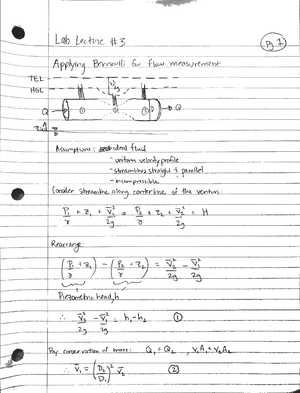 Lab Lecture #3
Pg 1
Applying Bernoulli for flow measurement
TEL
HGL
Q ① ② Q
Assumptions: ideal fluid
- uniform velocity profile
- streamlines straight & parallel
- incompressible
Consider streamline along centerline of the venturi:
P₁/γ + z₁ + V̄₁²/2g = P₂/γ + z₂ + V̄₂²/2g = H
Rearrange:
(P₁/γ + z₁) - (P₂/γ + z₂) = V̄₂²/2g - V̄₁²/2g
Piezometric head, h
∴ V̄₂²/2g - V̄₁²/2g = h₁ - h₂ ①
By conservation of mass: Q₁ = Q₂ , V₁A₁ = V₂A₂
∴ V̄₁ = (D₂/D₁)² V̄₂ ②